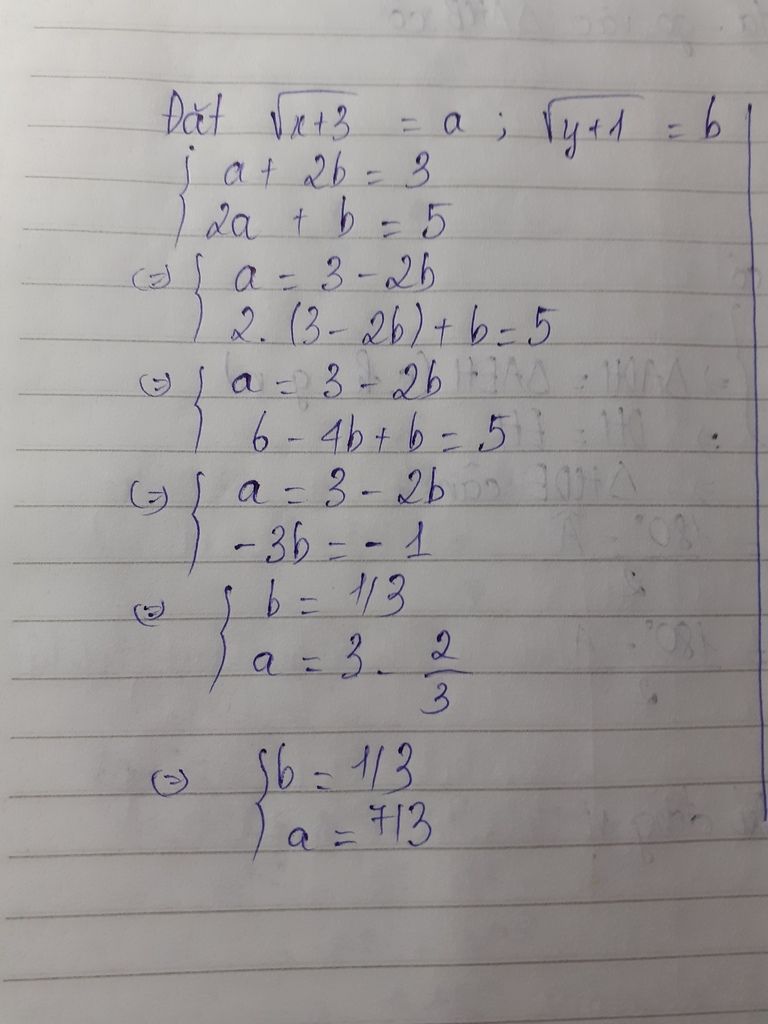 Đăt √x+3 = a ; √y+1 = b
{ a + 2b = 3
2a + b = 5
(=) { a = 3 - 2b
2. (3 - 2b) + b = 5
(=) { a = 3 - 2b
6 - 4b + b = 5
(=) { a = 3 - 2b
- 3b = - 1
(=) { b = 1/3
a = 3 - 2/3
(=) { b = 1/3
a = 7/3